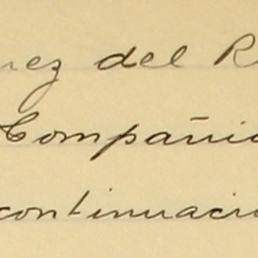 nez del R
Compañia
continuaci